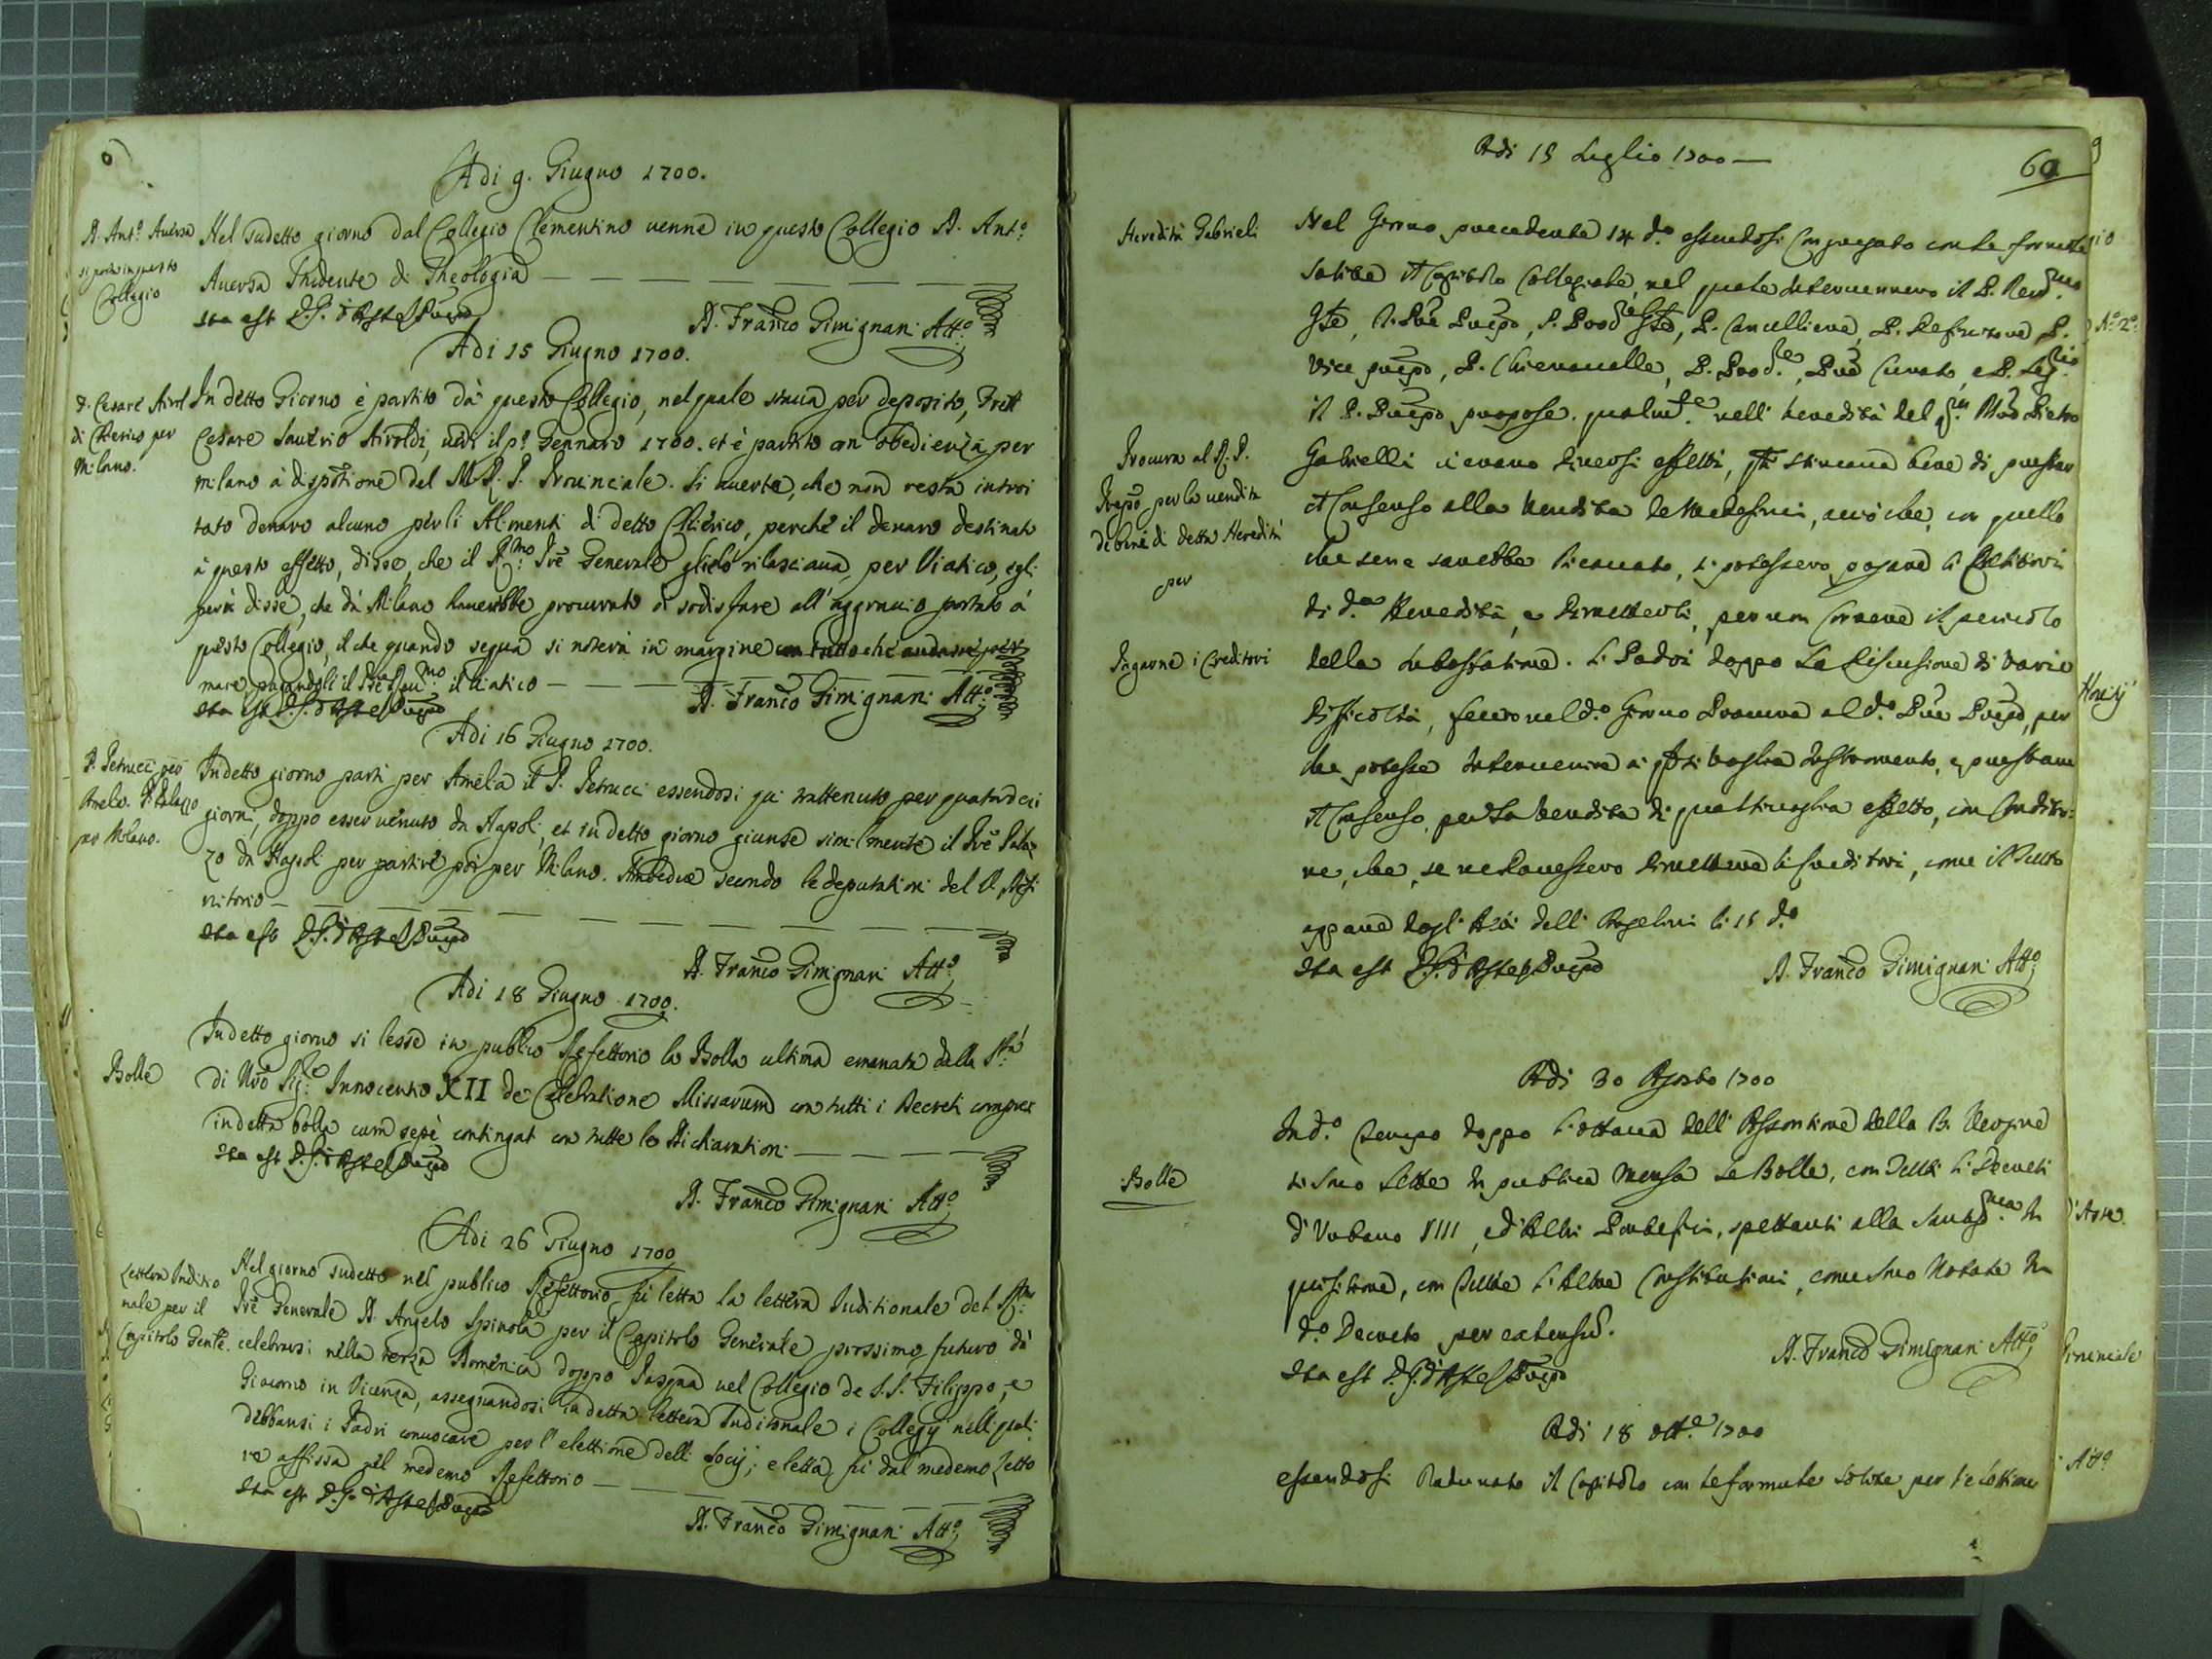 Adi 9. Giugno 1700.
D. Ant.º Auersa
si portò in questo
Collegio
Nel sudetto giorno dal Collegio Clementino uenne in questo Collegio D. Ant.º
Auersa Studente di Theologia
Ita est D. G. d'Aste Prepo
D. Franco Gimignani Att.º
Adi 15 Giugno 1700.
D. Cesare Airol
di Chierico per
Milano.
In detto Giorno è partito dà questo Collegio, nel quale staua per deposito, Frett
Cesare Sauerio Airoldi, uedi il p.º Gennaro 1700. et è partito con obedienza per
Milano à dispositione del M. R. P. Prouinciale. Si auerte, che non resta introi
tato denaro alcuno per li Alimenti di detto Chierico, perche il denaro destinato
à questo effetto, disse, che il R.mo Pre Generale glielo rilasciaua per Viatico, egli
però disse, che dà Milano hauerebbe procurato di sodisfare all'aggrauio portato à
questo Collegio, il che quando segua si noterà in margine
mare, pagandoli il Pre R.mo il Viatico
Ita est D. G. d'Aste Prepo
D. Franco Gimignani Att.º
Adi 16 Giugno 1700.
P. Petrucci per
Amelia. P. Palazzo
per Milano.
In detto giorno parti per Amelia il P. Petrucci essendosi qui trattenuto per quatordeci
giorni, doppo esser uenuto da Napoli, et in detto giorno giunse similmente il Pre Palaz
zo da Napoli per partire poi per Milano. Ambedue secondo le deputationi del V. Defi
nitorio
Ita est D. G. d'Aste Prepo
D. Franco Gimignani Att.º
Adi 18 Giugno 1700.
Bolle
In detto giorno si lesse in publico Refettorio la Bolla ultima emanata dalla S.tà
di Nro Sig.re Innocentio XII de Celebratione Missarum con tutti i Decreti compresi
in detta bolla cum sepè contingat con tutte le Dichiarationi
Ita est D. G. d'Aste Prepo
D. Franco Gimignani Att.º
Adi 26 Giugno 1700
Lettera Inditio
nale per il
Capitolo Genle.
Nel giorno sudetto nel publico Refettorio fù letta la lettera Inditionale del R.mo
Pre Generale D. Angelo Spinola per il Capitolo Generale prossimo futuro dà
celebrarsi nella terza Domenica doppo Pasqua nel Collegio de S.S. Filippo, e
Giacomo in Vicenza, assegnandosi in detta lettera Inditionale i Collegij nelli quali
debbansi i Padri conuocare per l'elettione delli Socij; e letta, fù dal medemo Letto
re affissa nel medemo Refettorio
Ita est D. G. d'Aste Prepo
D. Franco Gimignani Att.º
Adi 15 Luglio 1700
60
Heredità Gabrieli
Nel Giorno precedente 14 d.º essendosi Congregato con le formule
solite il Capitolo Collegiale, nel quale interuennero il P. Reu.mo
Gnle, il Pre Prepo, P. Proc.re Gnle, P. Cancelliere, P. Definitore, P.
Vice prepo, P. Chierauelle, P. Proc.re, Pre Curato, e P.
il P. Prepo propose, qualm.te nell'heredità del qm Pietro
Procura al R. P.
Prepo per la uendita
de beni di detta Heredità
per
pagarne i Creditori
Gabrielli ui erano diuersi effetti, stimaua bene di prestar
il Consenso alla Vendita de Medesimi, acciò che, con quello
che se ne sarebbe ricauato, si potessero pagare li Creditori
di d.a Heredità, e dimetterli, per non correre il pericolo
della . Li Padri doppo la discusione di Varie
difficoltà, fecero nel d.º Giorno Procura al d.º Pre Prepo, per
che potesse interuenire à qual si voglia Instromento, e prestare
il Consenso per la Vendita di qualsiuoglia effetto, con Conditio:
ne, che, se ne douessero dimettere li Creditori, come il Tutto
appare dagli Atti delli li 15 d.º
Ita est D. G. d'Aste Prepo
D. Franco Gimignani Att.º
Adi 30 Agosto 1700
Bolle
In d.º Tempo doppo l'ottaua dell'Assontione della B. Vergine
si sono lette in publica mensa le Bolle, con Tutti li Decreti
d'Urbano VIII, ed'Altri Pontefici, spettanti alla Santa In
quisitione, con Tutte l'Altre Constitutioni, come sono Notate in
d.º Decreto per extensum.
Ita est D. G. d'Aste Prepo
D. Franco Gimignani Att.º
Adi 18 Ott.e 1700
essendosi Radunato il Capitolo con le formule solite per l'elettione